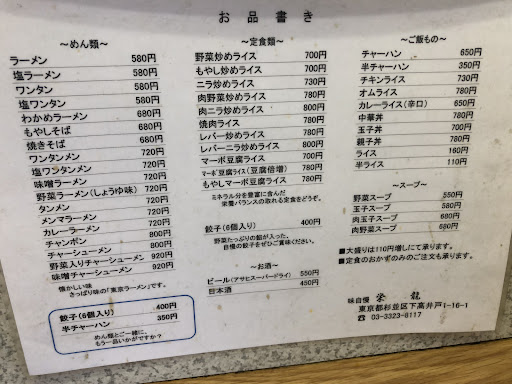 お品書き
～めん類～
ラーメン 580円
塩ラーメン 580円
ワンタン 580円
塩ワンタン 580円
わかめラーメン 680円
もやしそば 680円
焼きそば 680円
ワンタンメン 720円
塩ワンタンメン 720円
味噌ラーメン 720円
野菜ラーメン(しょうゆ味) 720円
タンメン 720円
メンマラーメン 720円
カレーラーメン 720円
チャンポン 800円
チャーシューメン 800円
野菜入りチャーシューメン 920円
味噌チャーシューメン 920円
懐かしい味
さっぱり味の「東京ラーメン」です。
餃子(6個入り) 400円
半チャーハン 350円
めん類とご一緒に、
もう一品いかがですか?
～定食類～
野菜炒めライス 700円
もやし炒めライス 700円
ニラ炒めライス 730円
肉野菜炒めライス 780円
肉ニラ炒めライス 800円
焼肉ライス 780円
レバー炒めライス 780円
レバーニラ炒めライス 800円
マーボ豆腐ライス 780円
マーボ豆腐ライス(豆腐倍増) 780円
もやしマーボ豆腐ライス 780円
ミネラル分を豊富に含んだ
栄養バランスの取れる定食をどうぞ。
餃子(6個入り) 400円
野菜たっぷりの餡が入った、
自慢の餃子をぜひご賞味ください。
～お酒～
ビール(アサヒスーパードライ) 550円
日本酒 450円
～ご飯もの～
チャーハン 650円
半チャーハン 350円
チキンライス 730円
オムライス 780円
カレーライス(辛口) 650円
中華丼 780円
玉子丼 700円
親子丼 780円
ライス 160円
半ライス 110円
～スープ～
野菜スープ 550円
玉子スープ 580円
肉玉子スープ 680円
肉野菜スープ 680円
■大盛りは110円増しにて承ります。
■定食のおかずのみのご注文も承ります。
味自慢 栄龍
東京都杉並区下高井戸1-16-1
☎ 03-3323-8117